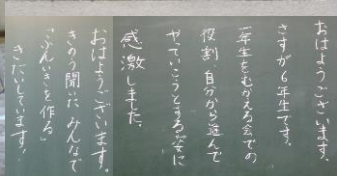 おはようございます。
さすが6年生です。
一年生をむかえる会での
役割、自分から進んで
やっていこうとする姿に
感激しました。
おはようございます。
きのう聞いた みんなで
「ふんいきを作る」
きたいしています!